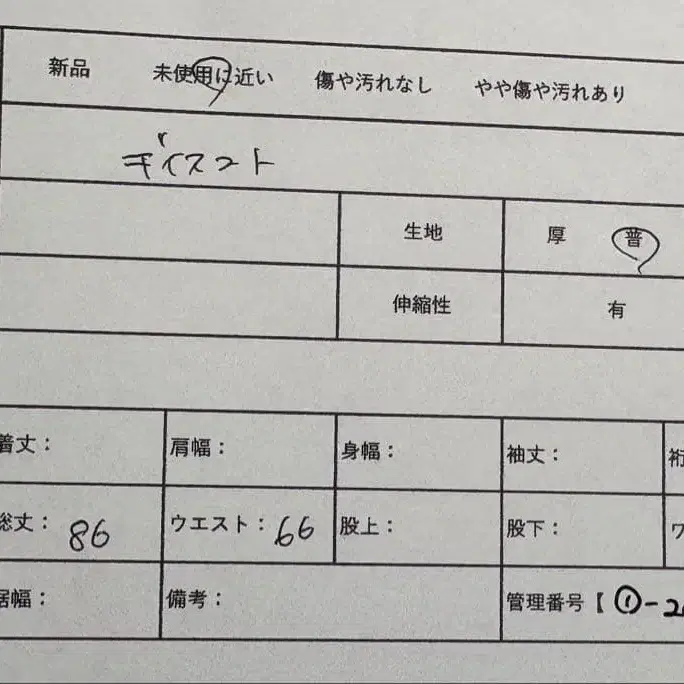 新品 未使用に近い 傷や汚れなし やや傷や汚れあり
生地 厚 普
伸縮性 有
着丈： 肩幅： 身幅： 袖丈： 裄
総丈： 86 ウエスト： 66 股上： 股下： ワ
裾幅： 備考： 管理番号【 ①-2